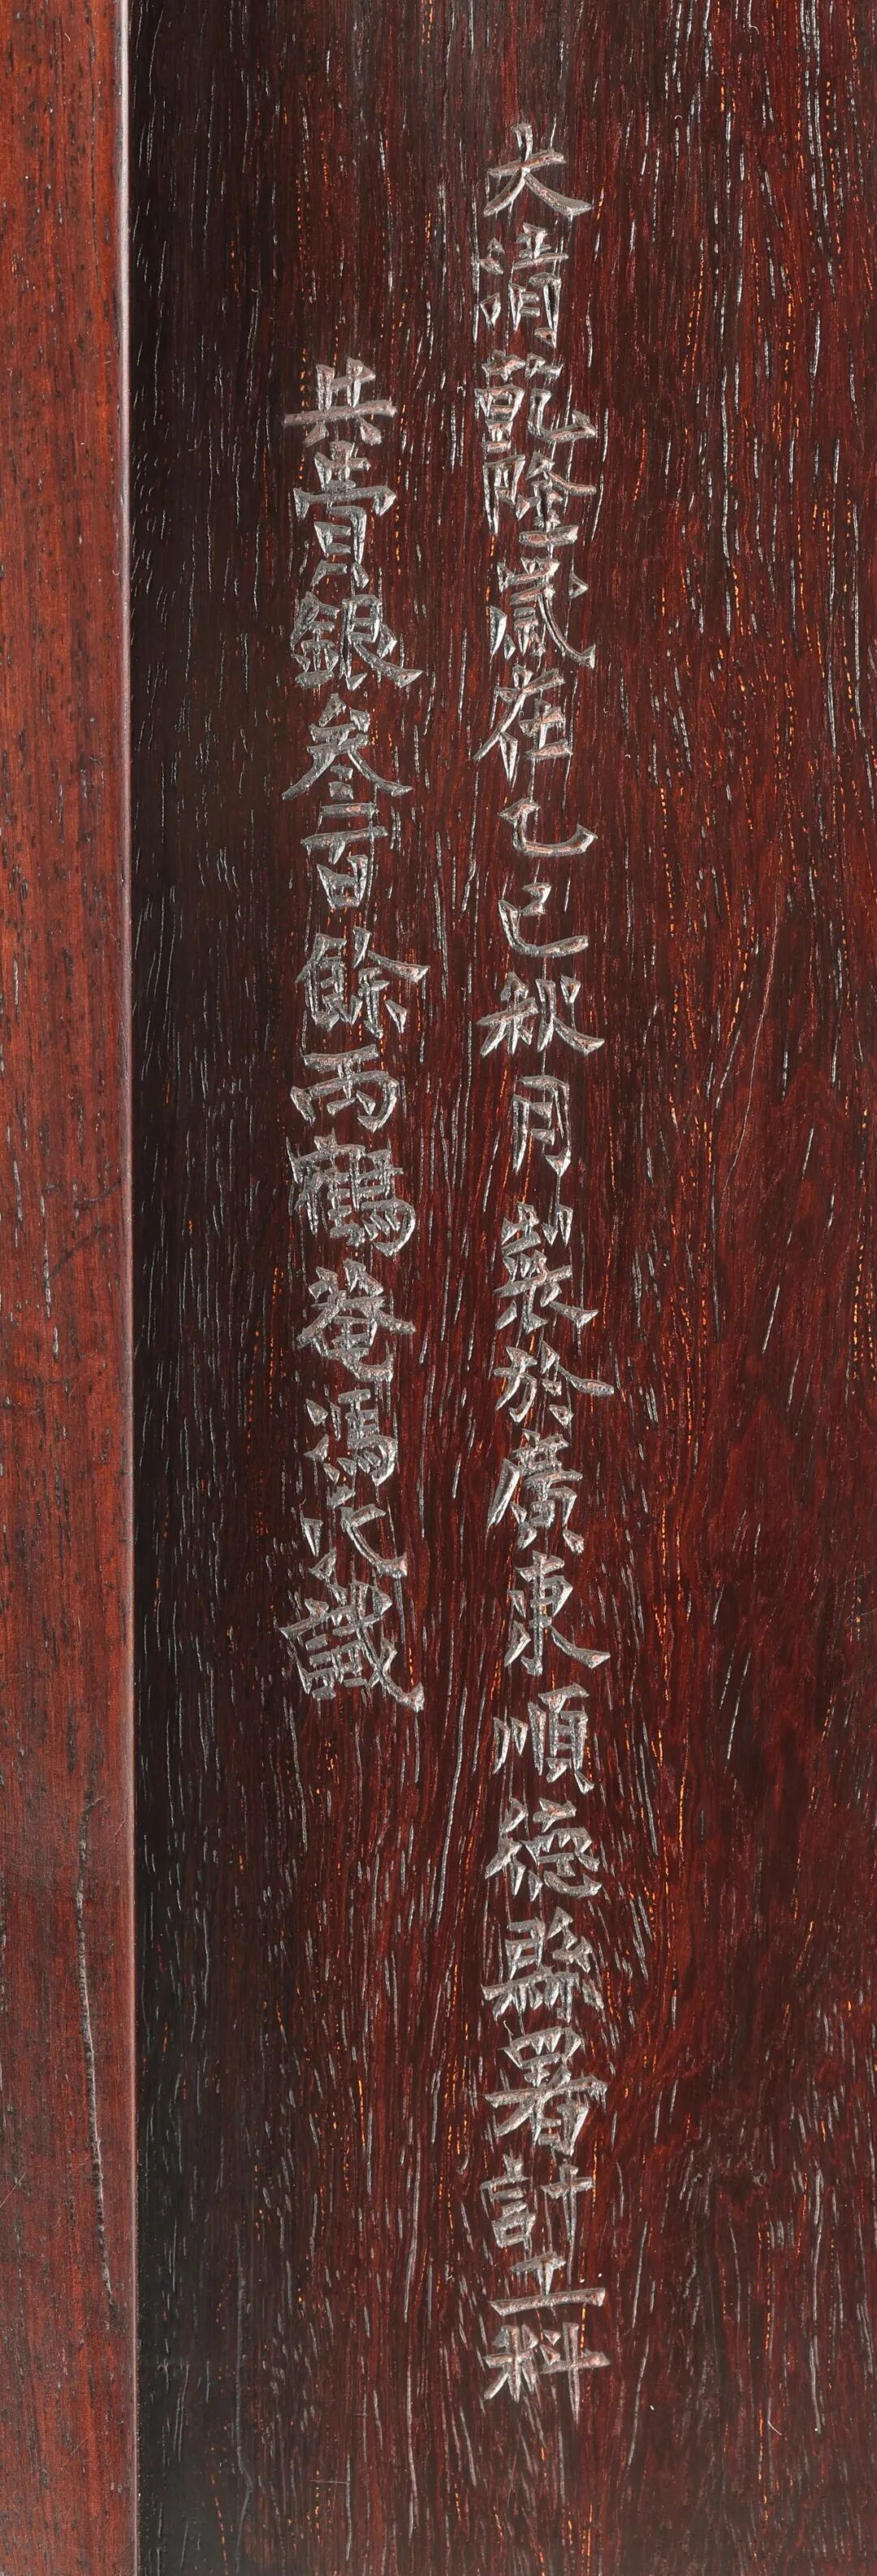 大清乾隆歲在乙巳秋月製於廣東順德縣署計工料
共費銀叁百餘兩鶴菴馮氏識